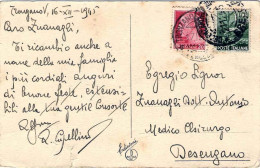 16-XII-1945
Caro Zuanaghi,
Ti ricambio anche a
nome della mia famiglia
i più cordiali auguri
di Buone Feste, estensi-
bili alla tua gentile Consorte
POSTE ITALIANE
Egregio Signor
Zuanaghi Dott. Antonio
Medico Chirurgo
Desenzano